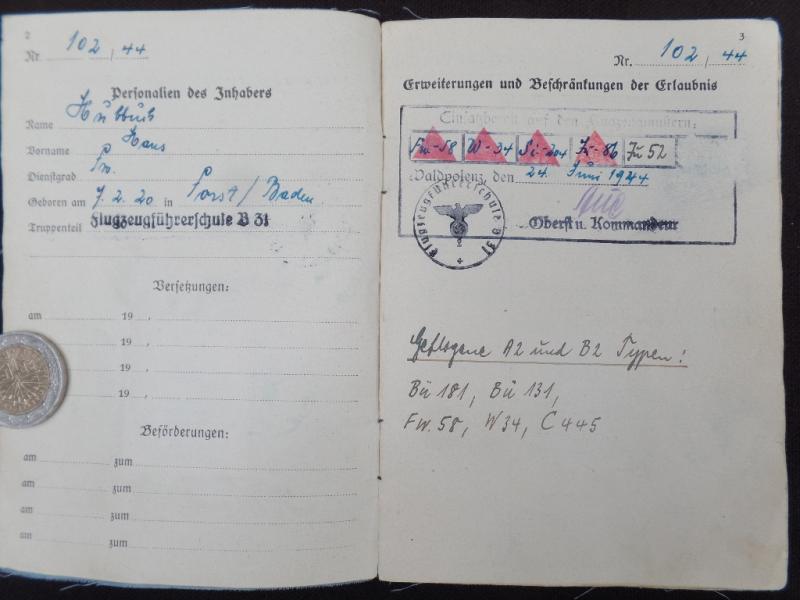 2
Nr. 102, 44
Personalien des Inhabers
Name Hubbuch
Vorname Hans
Dienstgrad
Geboren am 7.2.20 in Forst/Baden
Truppenteil Flugzeugführerschule B 31
Versetzungen:
am 19 ,
19 ,
19 ,
19 ,
Beförderungen:
am zum
am zum
am zum
am zum
3
Nr. 102, 44
Erweiterungen und Beschränkungen der Erlaubnis
Einsatzberen auf den Flugzeugmustern:
Fw-58 W-34 Si-204 Ju-86 Ju 52
Waldpolenz, den 24. Juni 1944
Flugzeugführerschule B 31
Oberst u. Kommandeur
Geflogene A2 und B2 Typen!
Bü 181, Bü 131,
Fw. 58, W34, C 445